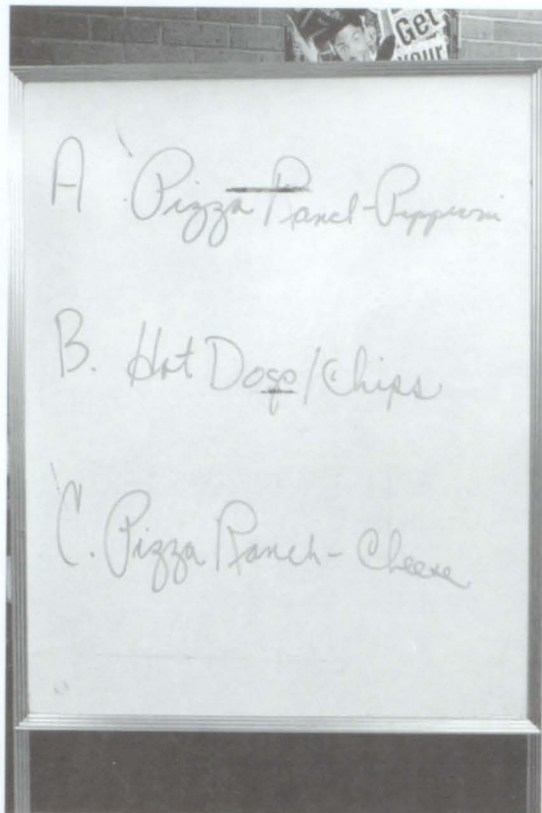 Get
your
A Pizza Ranch - Pepperoni
B. Hot Dogs/Chips
C. Pizza Ranch - Cheese